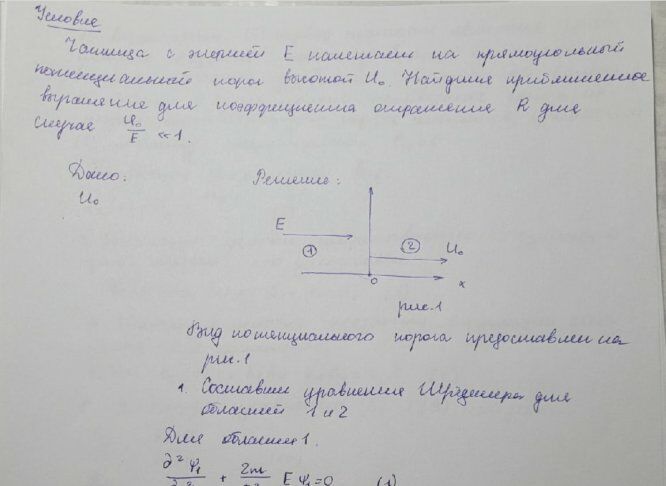 Условие
Частица с энергией E налетает на прямоугольный
потенциальный порог высотой U₀. Найдите приближенное
выражение для коэффициента отражения R для
случая U₀/E ≪ 1.
Дано:
U₀
Решение:
E
①
②
U₀
0
x
рис.1
Вид потенциального порога предоставлен на
рис.1
1. Составим уравнения Шредингера для
областей 1 и 2
Для области 1.
∂²Ψ₁ + 2m E Ψ₁=0 (1)